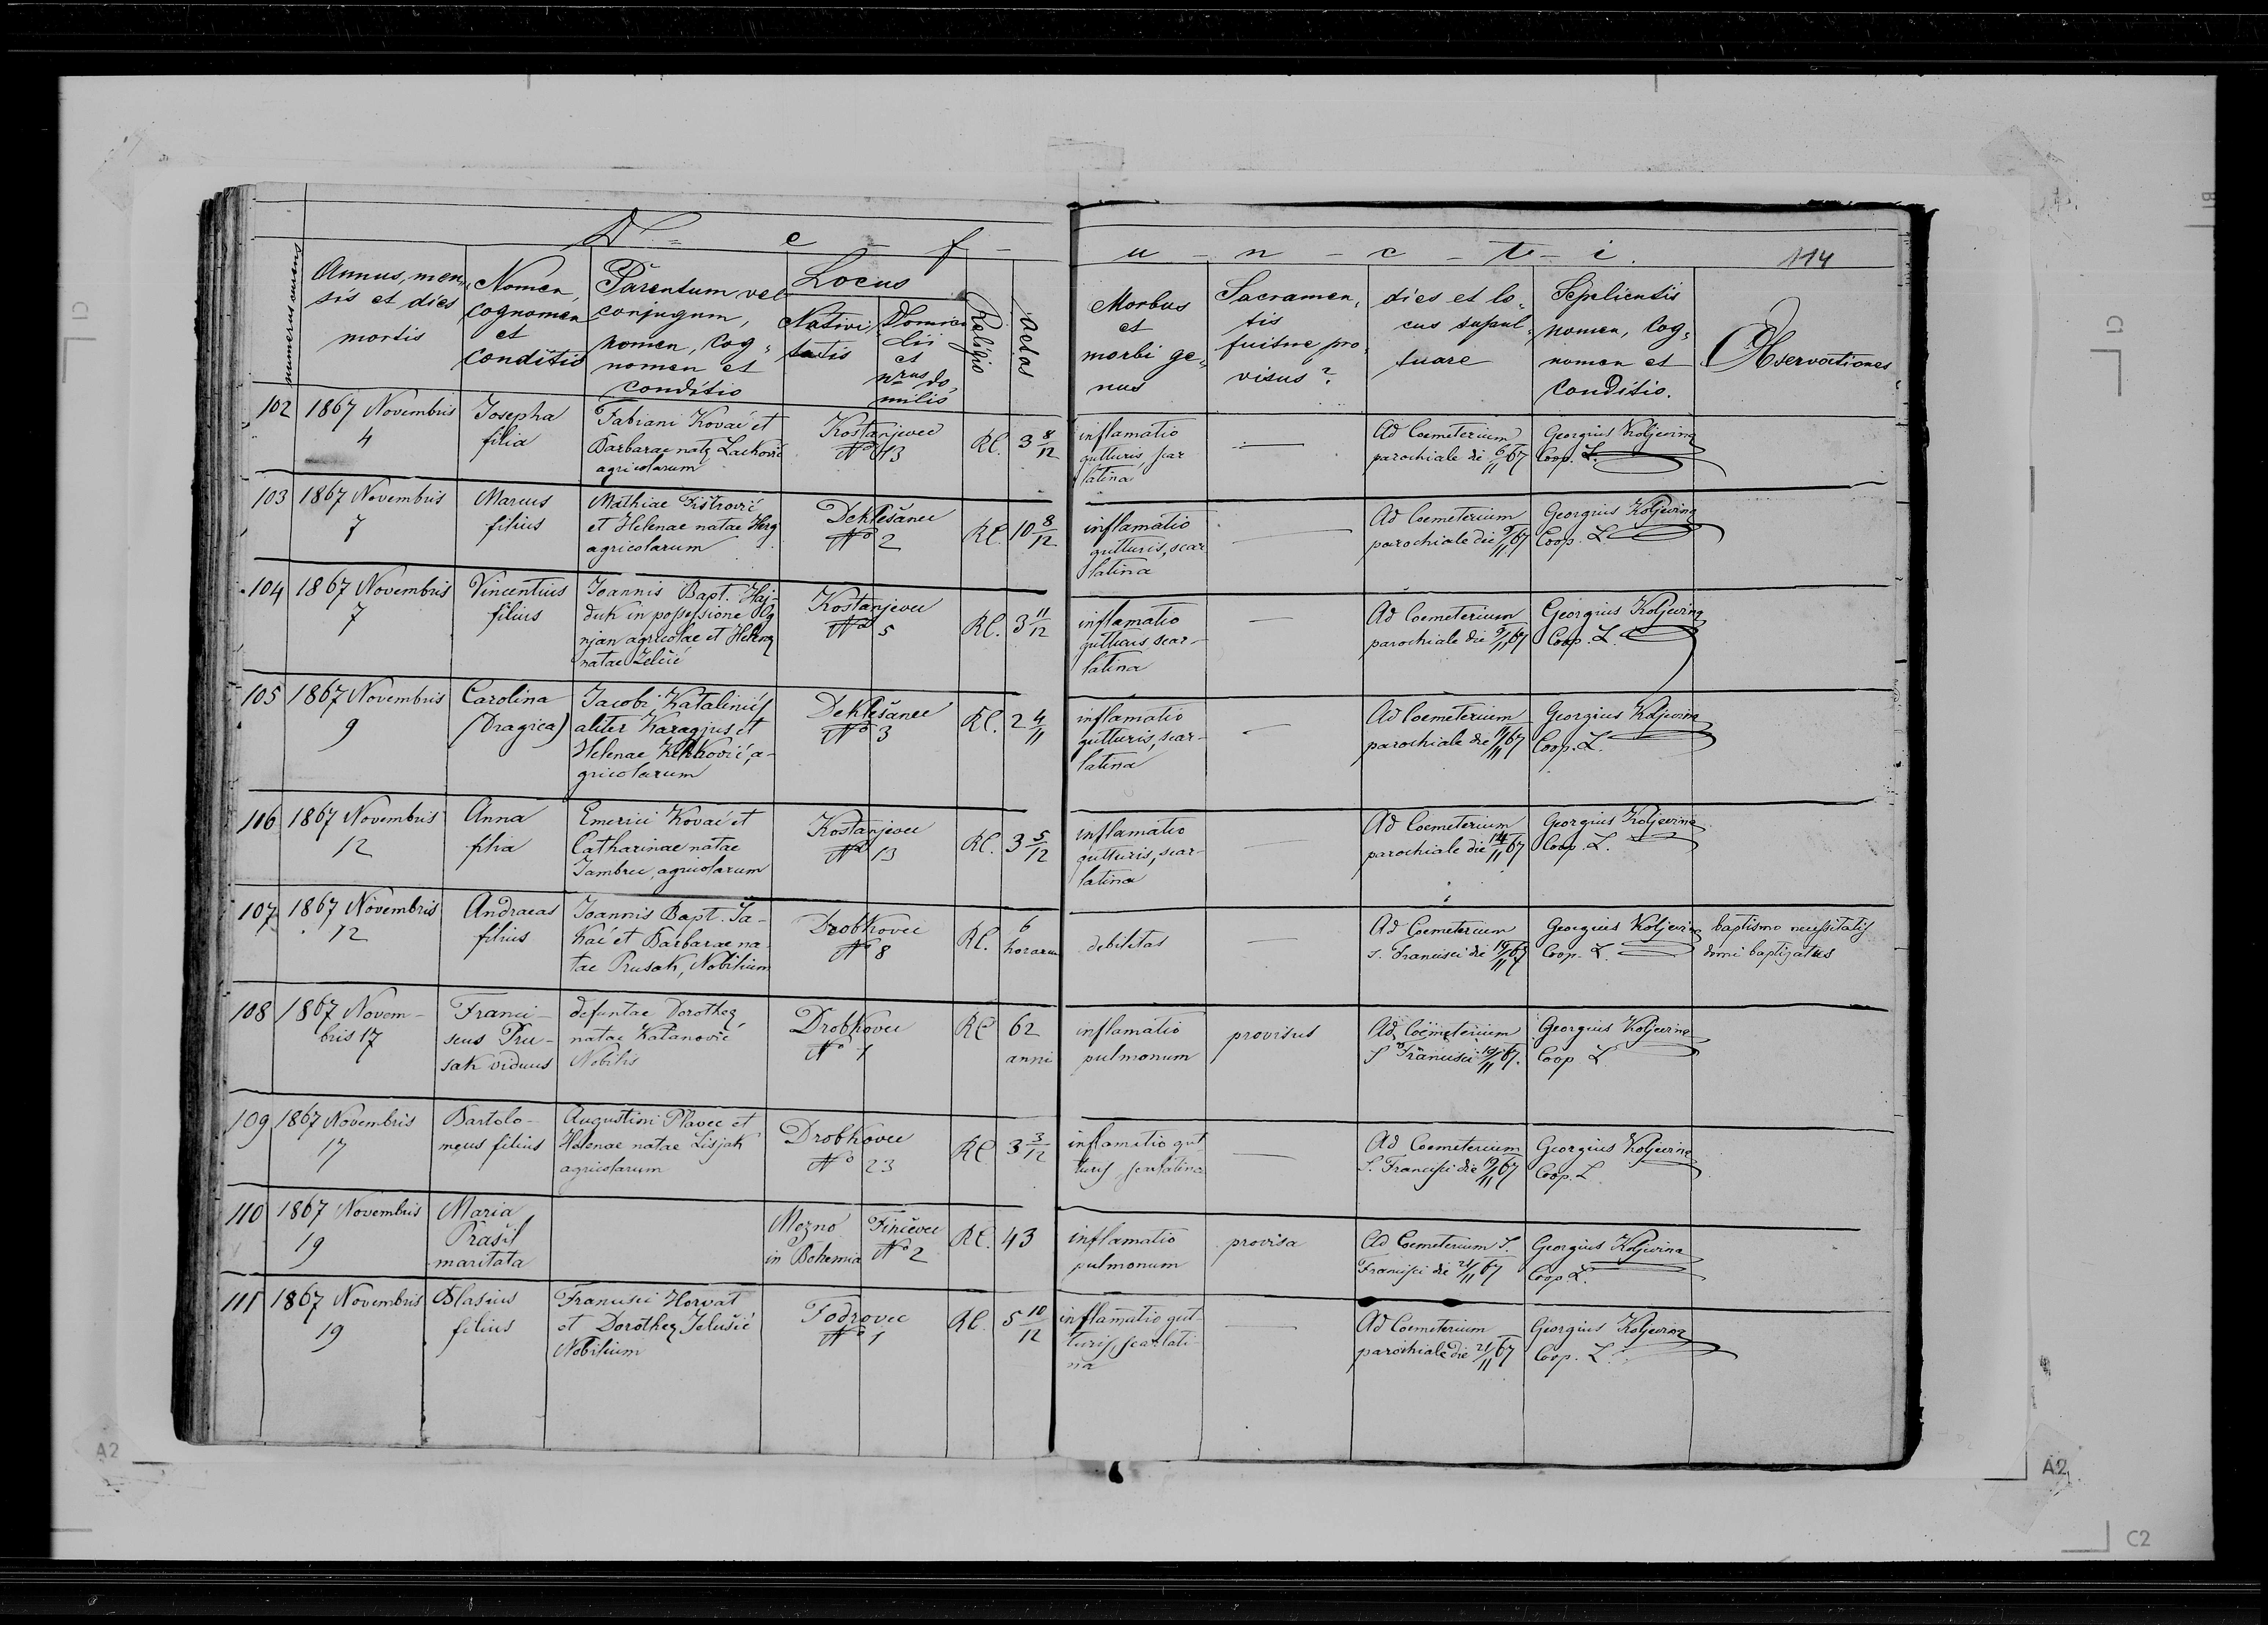 D - e - f - u - n - c - t - i.
114
numerus currens
Annus, men-
sis et dies
mortis
Nomen,
cognomen
et
conditio
Parentum vel
conjugum,
nomen, cog-
nomen et
conditio
Locus
Nativi-
tatis
Domici-
lii
et
Nrus do-
milis
Religio
Aetas
Morbus
et
morbi ge-
nus
Sacramen-
tis
fuitne pro-
visus?
dies et lo-
cus sepul-
turae
Sepelientis
nomen, cog-
nomen et
conditio.
Observationes
102
1867 Novembris
4
Josepha
filia
Fabiani Kovač et
Barbarae natę Lacković
agricolarum
Kostanjevec
No 13
RC.
3 8/12
inflamatio
gutturis, scar
latina
—
Ad Coemeterium
parochiale di 6/11 67
Georgius Koljevina
Coop. L.
103
1867 Novembris
7
Marcus
filius
Mathiae
et Helenae natae Herg
agricolarum
Deklešanec
No 2
RC.
10 8/12
inflamatio
gutturis, scar
latina
—
Ad Coemeterium
parochiale die 9/11 67
Georgius Koljevina
Coop. L.
104
1867 Novembris
7
Vincentius
filius
Joannis Bapt. Haj-
duk in possessione Og
njan agricolae et Helenę
natae Zelčić
Kostanjevec
No 5
RC.
3 11/12
inflamatio
gutturis, scar-
latina
—
Ad Coemeterium
parochiale die 9/11 67
Georgius Koljevina
Coop. L.
105
1867 Novembris
9
Carolina
(Dragica)
Jacobi Katalinić
aliter Karagjus et
Helenae, a-
gricolarum
Deklešanec
No 3
RC.
2 4/11
inflamatio
gutturis, scar-
latina
—
Ad Coemeterium
parochiale die 11/11 67
Georgius Koljevina
Coop. L.
106
1867 Novembris
12
Anna
filia
Emerici Kovač et
Catharinae natae
Jambrec, agricolarum
Kostanjevec
No 13
RC.
3 5/12
inflamatio
gutturis, scar-
latina
—
Ad Coemeterium
parochiale die 14/11 67
Georgius Koljevina
Coop. L.
107
1867 Novembris
12
Andraeas
filius
Joannis Bapt. Ja-
kač et Barbarae na-
tae Prusak, Nobilium
Drobkovec
No 8
RC.
6
horarum
debilitas
—
Ad Coemeterium
s. Francisci die 14/11 67
Georgius Koljevina
Coop. L.
baptismo necessitatis
domi baptizatus
108
1867 Novem-
bris 17
Franci-
scus Pru-
sak viduus
defuntae Dorotheę
natae Katanović
Nobilis
Drobkovec
No 1
RC
62
anni
inflamatio
pulmonum
provisus
Ad Coemeterium
S Francisci 19/11 67.
Georgius Koljevina
Coop L
109
1867 Novembris
17
Bartolo-
meus filius
Augustini Plavec et
Helenae natae Lisjak
agricolarum
Drobkovec
No 23
RC
3 3/12
inflamatio gut
turis scarlatina
—
Ad Coemeterium
S. Francisci die 19/11 67
Georgius Koljevina
Coop. L
110
1867 Novembris
19
Maria
Prašil
maritata
Mezno
in Bohemia
Finčevec
No 2
RC.
43
inflamatio
pulmonum
provisa
Ad Coemeterium S.
Francisci die 21/11 67
Georgius Koljevina
Coop L.
111
1867 Novembris
19
Blasius
filius
Francisci Horvat
et Dorotheę Jelušić
Nobilium
Fodrovec
No 1
RC.
5 10/12
inflamatio gut
turis, scarlati
na
—
Ad Coemeterium
parochiale die 21/11 67
Georgius Koljevina
Coop. L.
C1
C1
B1
A2
A2
C2